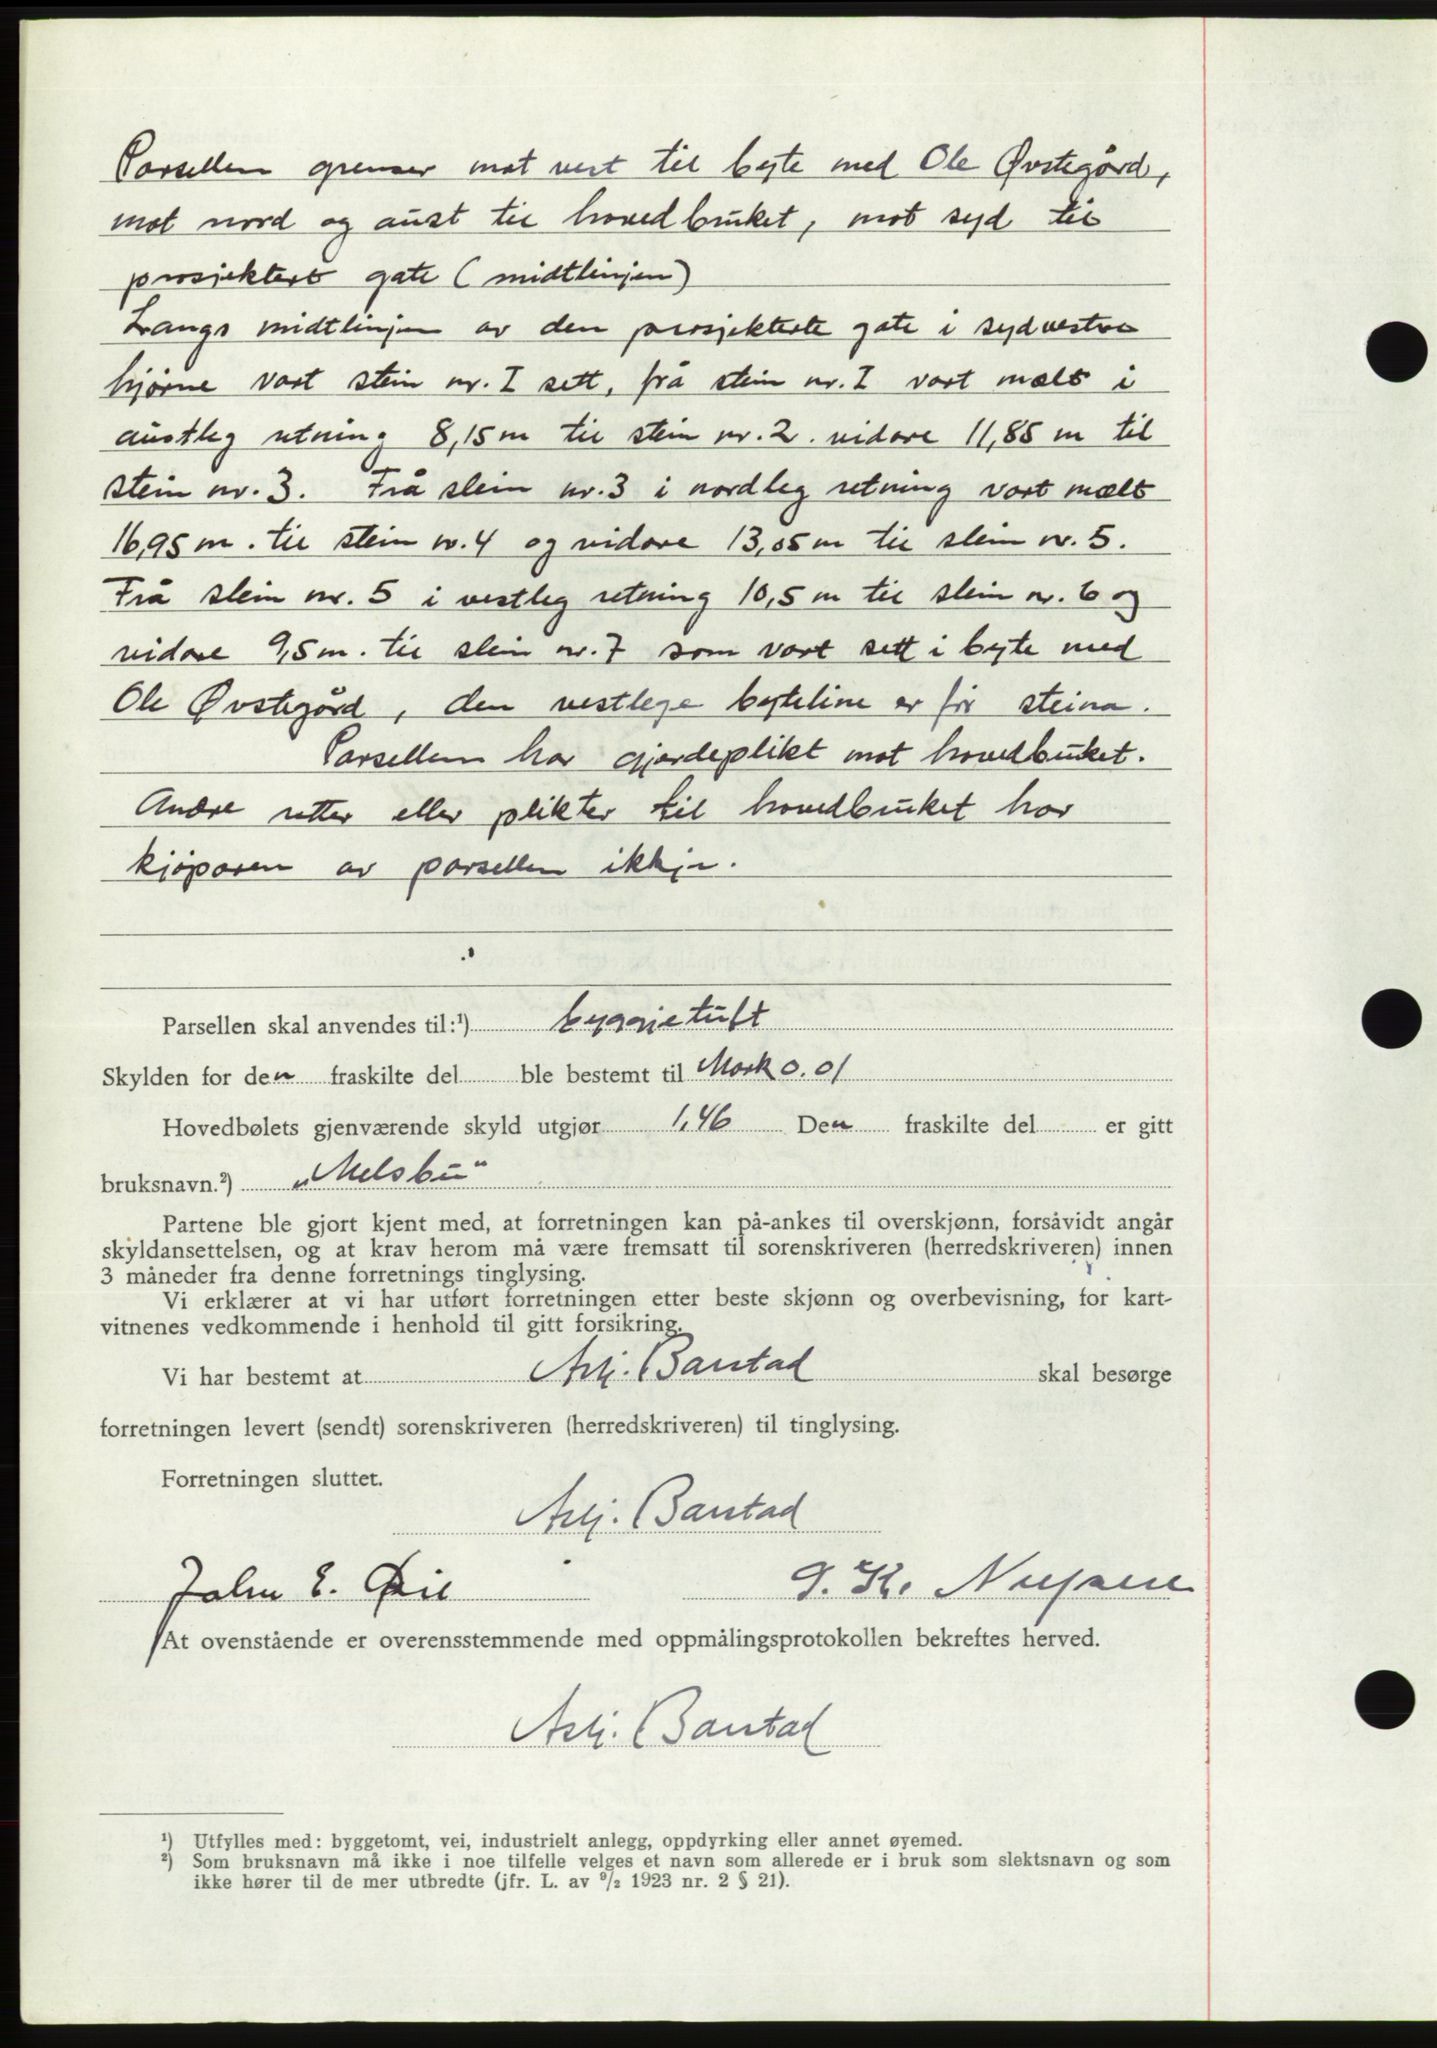 Parsellen grenser mot vest til byte med Ole Øvstegård,
mot nord og aust til hovedbruket, mot syd til
prosjektert gate (midtlinjen)
Langs midtlinjen av den prosjekterte gate i sydvestre
hjørne vart stein nr. I sett, frå stein nr. I vart mælt i
austleg retning 8,15 m til stein nr. 2. vidare 11,85 m til
stein nr. 3. Frå stein nr. 3 i nordleg retning vart mælt
16,95 m. til stein nr. 4 og vidare 13,05 m til stein nr. 5.
Frå stein nr. 5 i vestleg retning 10,5 m til stein nr. 6 og
vidare 9,5 m. til stein nr. 7 som vart sett i byte med
Ole Øvstegård, den vestlege byteline er før steina.
Parsellen har gjerdeplikt mot hovedbruket.
Andre retter eller plikter til hovedbruket har
kjøparen av parsellen ikkje.
Parsellen skal anvendes til:¹) byggjetuft
Skylden for den fraskilte del ble bestemt til Mark 0.01
Hovedbølets gjenværende skyld utgjør 1,46 Den fraskilte del er gitt
bruksnavn.²) „Melsbu“
Partene ble gjort kjent med, at forretningen kan på-ankes til overskjønn, forsåvidt angår
skyldansettelsen, og at krav herom må være fremsatt til sorenskriveren (herredskriveren) innen
3 måneder fra denne forretnings tinglysing.
Vi erklærer at vi har utført forretningen etter beste skjønn og overbevisning, for kart-
vitnenes vedkommende i henhold til gitt forsikring.
Vi har bestemt at Asbj. Barstad skal besørge
forretningen levert (sendt) sorenskriveren (herredskriveren) til tinglysing.
Forretningen sluttet.
Asbj. Barstad
John E. Øie
At ovenstående er overensstemmende med oppmålingsprotokollen bekreftes herved.
Asbj. Barstad
¹) Utfylles med: byggetomt, vei, industrielt anlegg, oppdyrking eller annet øyemed.
²) Som bruksnavn må ikke i noe tilfelle velges et navn som allerede er i bruk som slektsnavn og som
ikke hører til de mer utbredte (jfr. L. av ⁹/₂ 1923 nr. 2 § 21).